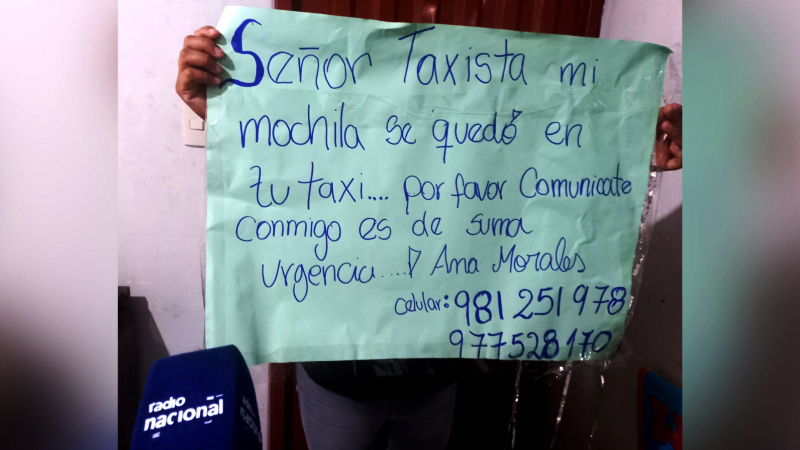 Señor Taxista mi
mochila se quedó en
tu taxi.... por favor Comunicate
Conmigo es de suma
urgencia....! Ana Morales
celular: 981 251 978
977528170
radio
nacional